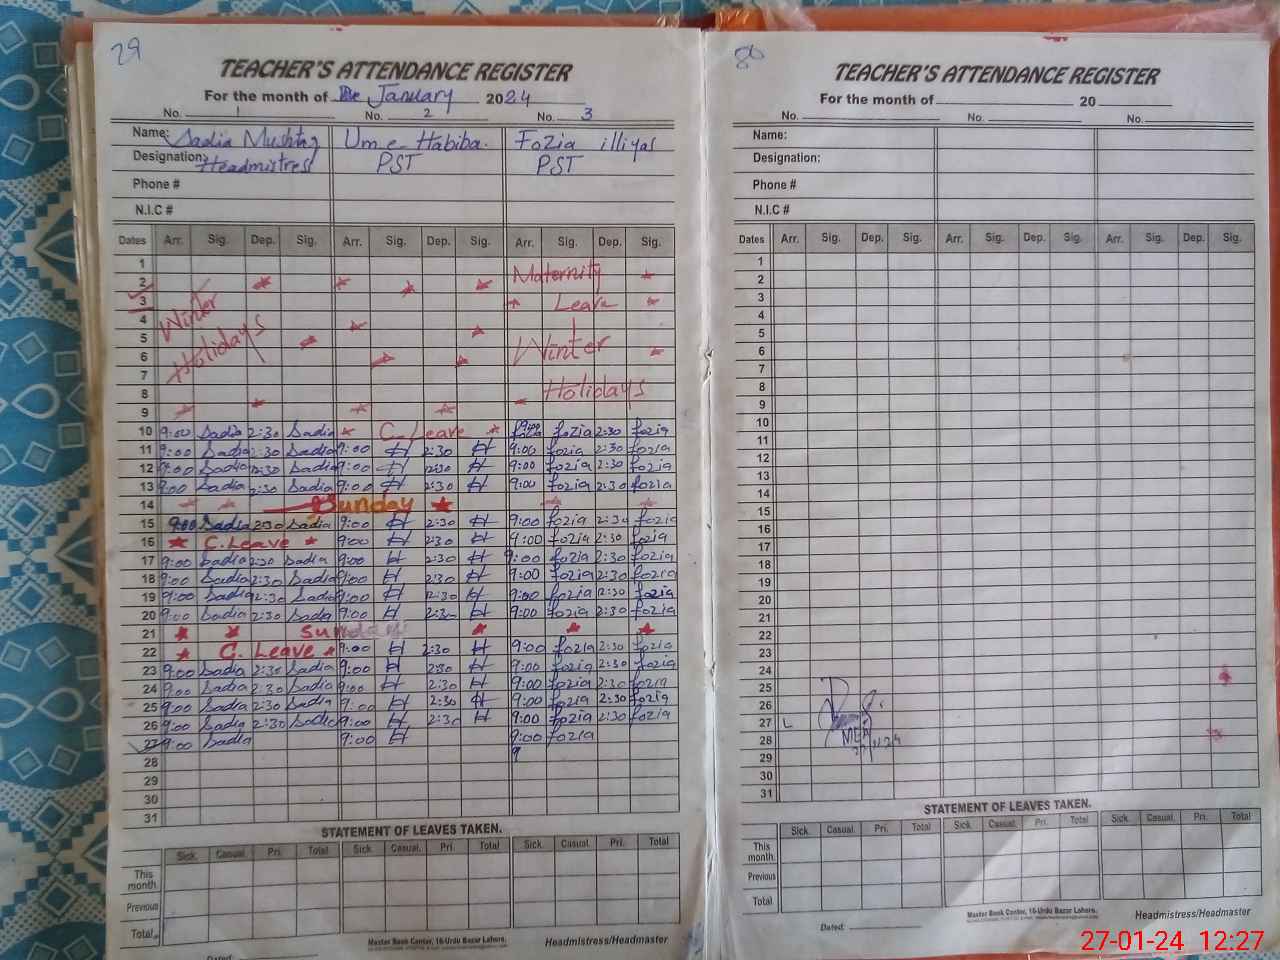 29
TEACHER'S ATTENDANCE REGISTER
For the month of January 2024
No. 1 No. 2 No. 3
Name: Sadia Mushtaq Um e Habiba. Fozia illiyas
Designation: Headmistres PST PST
Phone #
N.I.C #
Dates Arr. Sig. Dep. Sig. Arr. Sig. Dep. Sig. Arr. Sig. Dep. Sig.
1 Maternity
2
3 Winter Leave
4
5 Holidays
6 Winter
7
8 Holidays
9
10 9:00 Sadia 2:30 Sadia C. Leave 9:00 fozia 2:30 fozia
11 9:00 Sadia 2:30 Sadia 9:00 H 2:30 H 9:00 fozia 2:30 fozia
12 9:00 Sadia 2:30 Sadia 9:00 H 12:30 H 9:00 fozia 2:30 fozia
13 9:00 Sadia 2:30 Sadia 9:00 H 2:30 H 9:00 fozia 2:30 fozia
14 Sunday
15 9:00 Sadia 2:30 Sadia 9:00 H 2:30 H 9:00 fozia 2:30 fozia
16 C. Leave 9:00 H 2:30 H 9:00 fozia 2:30 fozia
17 9:00 Sadia 2:30 Sadia 9:00 H 2:30 H 9:00 fozia 2:30 fozia
18 9:00 Sadia 2:30 Sadia 9:00 H 2:30 H 9:00 fozia 2:30 fozia
19 9:00 Sadia 2:30 Sadia 9:00 H 12:30 H 9:00 fozia 12:30 fozia
20 9:00 Sadia 2:30 Sadia 9:00 H 2:30 H 9:00 fozia 2:30 fozia
21 Sunday
22 C. Leave 9:00 H 2:30 H 9:00 fozia 2:30 fozia
23 9:00 Sadia 2:30 Sadia 9:00 H 2:30 H 9:00 fozia 2:30 fozia
24 9:00 Sadia 2:30 Sadia 9:00 H 2:30 H 9:00 fozia 2:30 fozia
25 9:00 Sadia 2:30 Sadia 9:00 H 2:30 H 9:00 fozia 2:30 fozia
26 9:00 Sadia 2:30 Sadia 9:00 H 2:30 H 9:00 fozia 2:30 fozia
27 9:00 Sadia 9:00 H 9:00 fozia
28 9
29
30
31
STATEMENT OF LEAVES TAKEN.
Sick. Casual. Pri. Total Sick. Casual. Pri. Total Sick. Casual. Pri. Total
This month.
Previous
Total
Master Book Center, 16-Urdu Bazar Lahore.
Headmistress/Headmaster
Dated:
TEACHER'S ATTENDANCE REGISTER
For the month of 20
No. No. No.
Name:
Designation:
Phone #
N.I.C #
Dates Arr. Sig. Dep. Sig. Arr. Sig. Dep. Sig. Arr. Sig. Dep. Sig.
1
2
3
4
5
6
7
8
9
10
11
12
13
14
15
16
17
18
19
20
21
22
23
24
25
26
27 L
28
29
30
31
STATEMENT OF LEAVES TAKEN.
Sick. Casual. Pri. Total Sick. Casual. Pri. Total Sick. Casual. Pri. Total
This month.
Previous
Total
Master Book Center, 16-Urdu Bazar Lahore.
Headmistress/Headmaster
Dated:
27-01-24 12:27